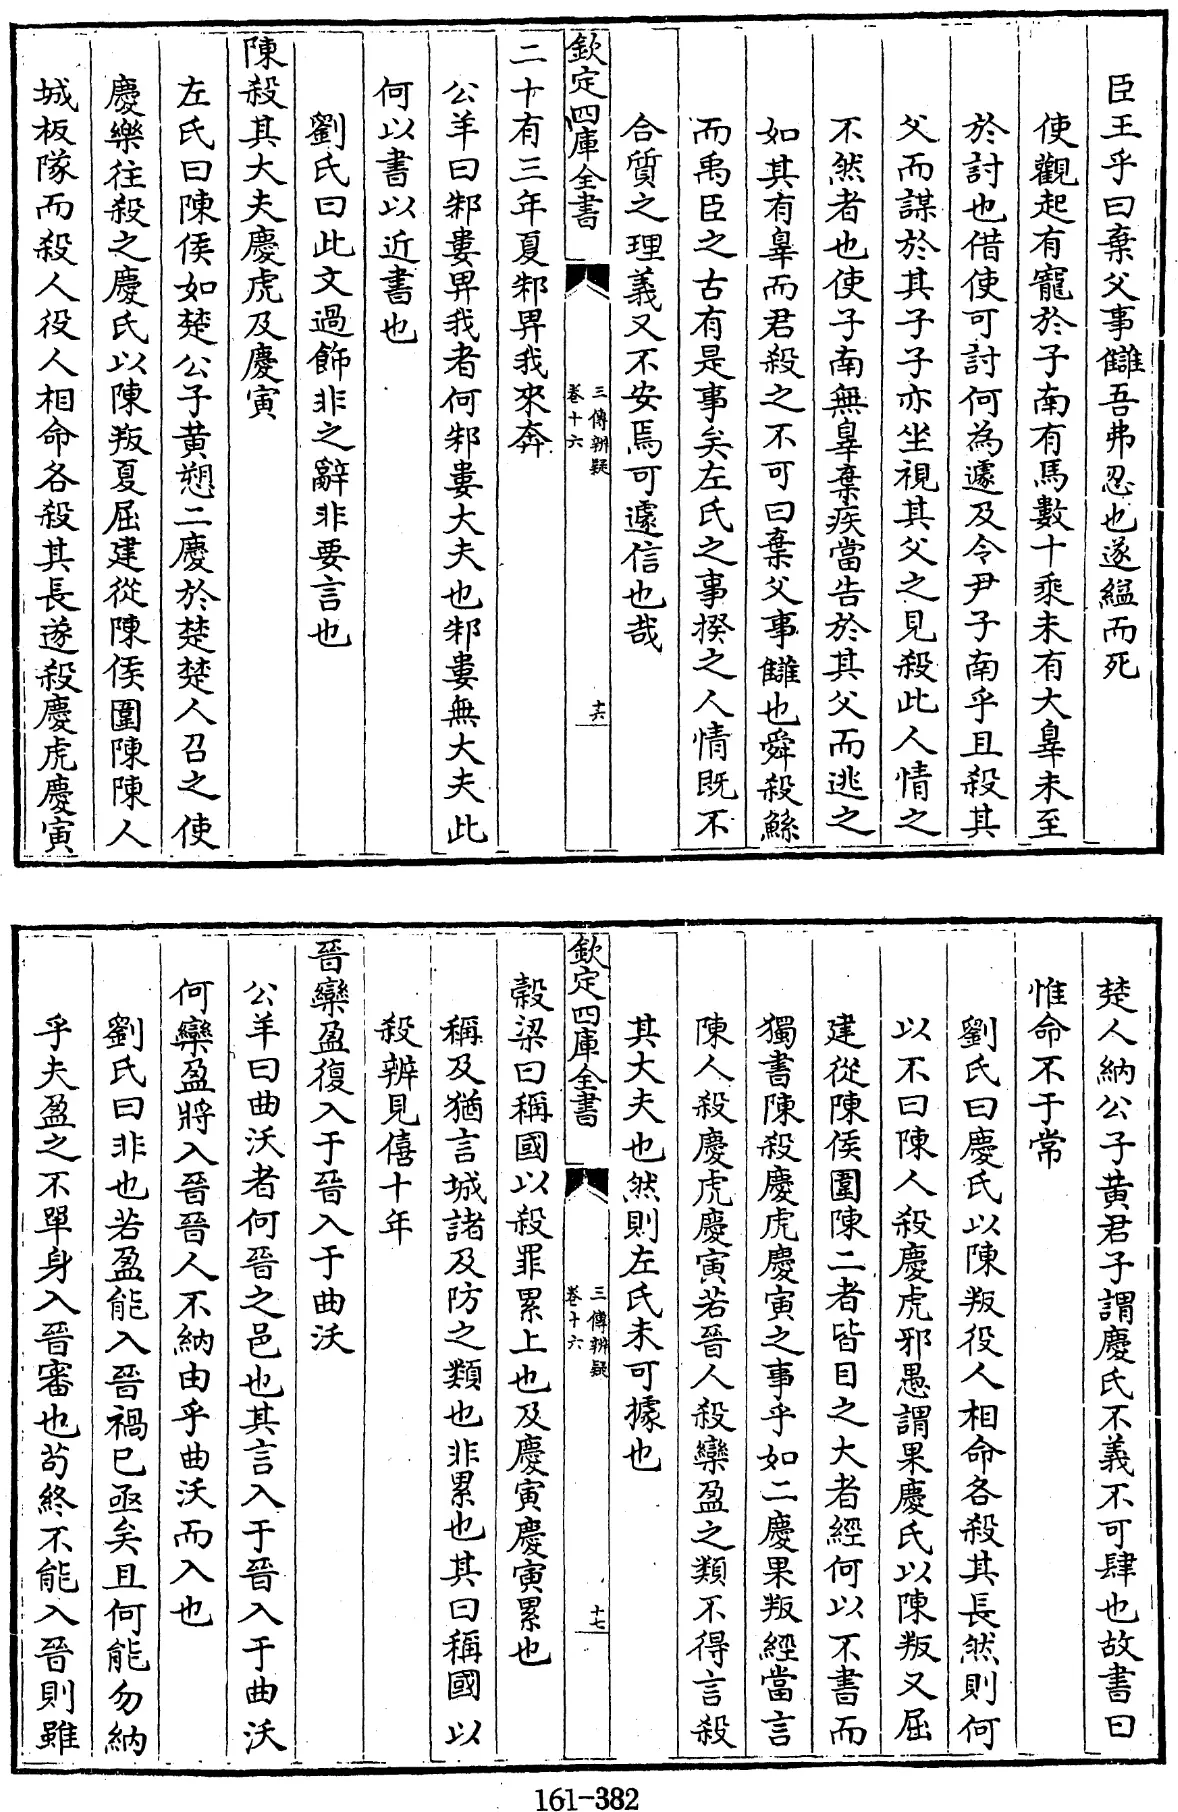 臣王乎曰棄父事讎吾弗忍也遂縊而死
使觀起有寵於子南有馬數十乘未有大辠未至
於討也借使可討何為遽及令尹子南乎且殺其
父而謀於其子子亦坐視其父之見殺此人情之
不然者也使子南無辠棄疾當告於其父而逃之
如其有辠而君殺之不可曰棄父事讎也舜殺鯀
而禹臣之古有是事矣左氏之事揆之人情既不
合質之理義又不安焉可遽信也哉
欽定四庫全書
三傳辨疑
卷十六
十六
二十有三年夏邾畀我來奔
公羊曰邾婁畀我者何邾婁大夫也邾婁無大夫此
何以書以近書也
劉氏曰此文過飾非之辭非要言也
陳殺其大夫慶虎及慶寅
左氏曰陳侯如楚公子黃愬二慶於楚楚人召之使
慶樂往殺之慶氏以陳叛夏屈建從陳侯圍陳陳人
城板隊而殺人役人相命各殺其長遂殺慶虎慶寅
楚人納公子黃君子謂慶氏不義不可肆也故書曰
惟命不于常
劉氏曰慶氏以陳叛役人相命各殺其長然則何
以不曰陳人殺慶虎邪愚謂果慶氏以陳叛又屈
建從陳侯圍陳二者皆目之大者經何以不書而
獨書陳殺慶虎慶寅之事乎如二慶果叛經當言
陳人殺慶虎慶寅若晉人殺欒盈之類不得言殺
其大夫也然則左氏未可據也
欽定四庫全書
三傳辨疑
卷十六
十七
穀梁曰稱國以殺罪累上也及慶寅慶寅累也
稱及猶言城諸及防之類也非累也其曰稱國以
殺辨見僖十年
晉欒盈復入于晉入于曲沃
公羊曰曲沃者何晉之邑也其言入于晉入于曲沃
何欒盈將入晉晉人不納由乎曲沃而入也
劉氏曰非也若盈能入晉禍已亟矣且何能勿納
乎夫盈之不單身入晉審也苟終不能入晉則雖
161-382